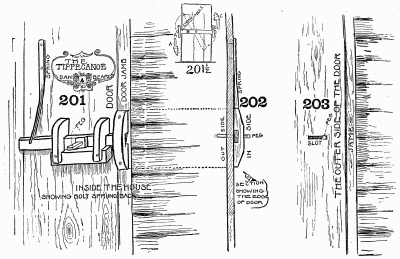 THE
TIPPECANOE
DAN BEARD
201
SPRING
PEG
DOOR
DOOR JAMB
INSIDE THE HOUSE
SHOWING BOLT SPRUNG BACK
A
C
201½
202
SPRING
OUT SIDE
IN SIDE
PEG
SECTION
SHOWING
THE EDGE
OF DOOR
203
PEG
SLOT
THE OUTER SIDE OF THE DOOR
JAMB